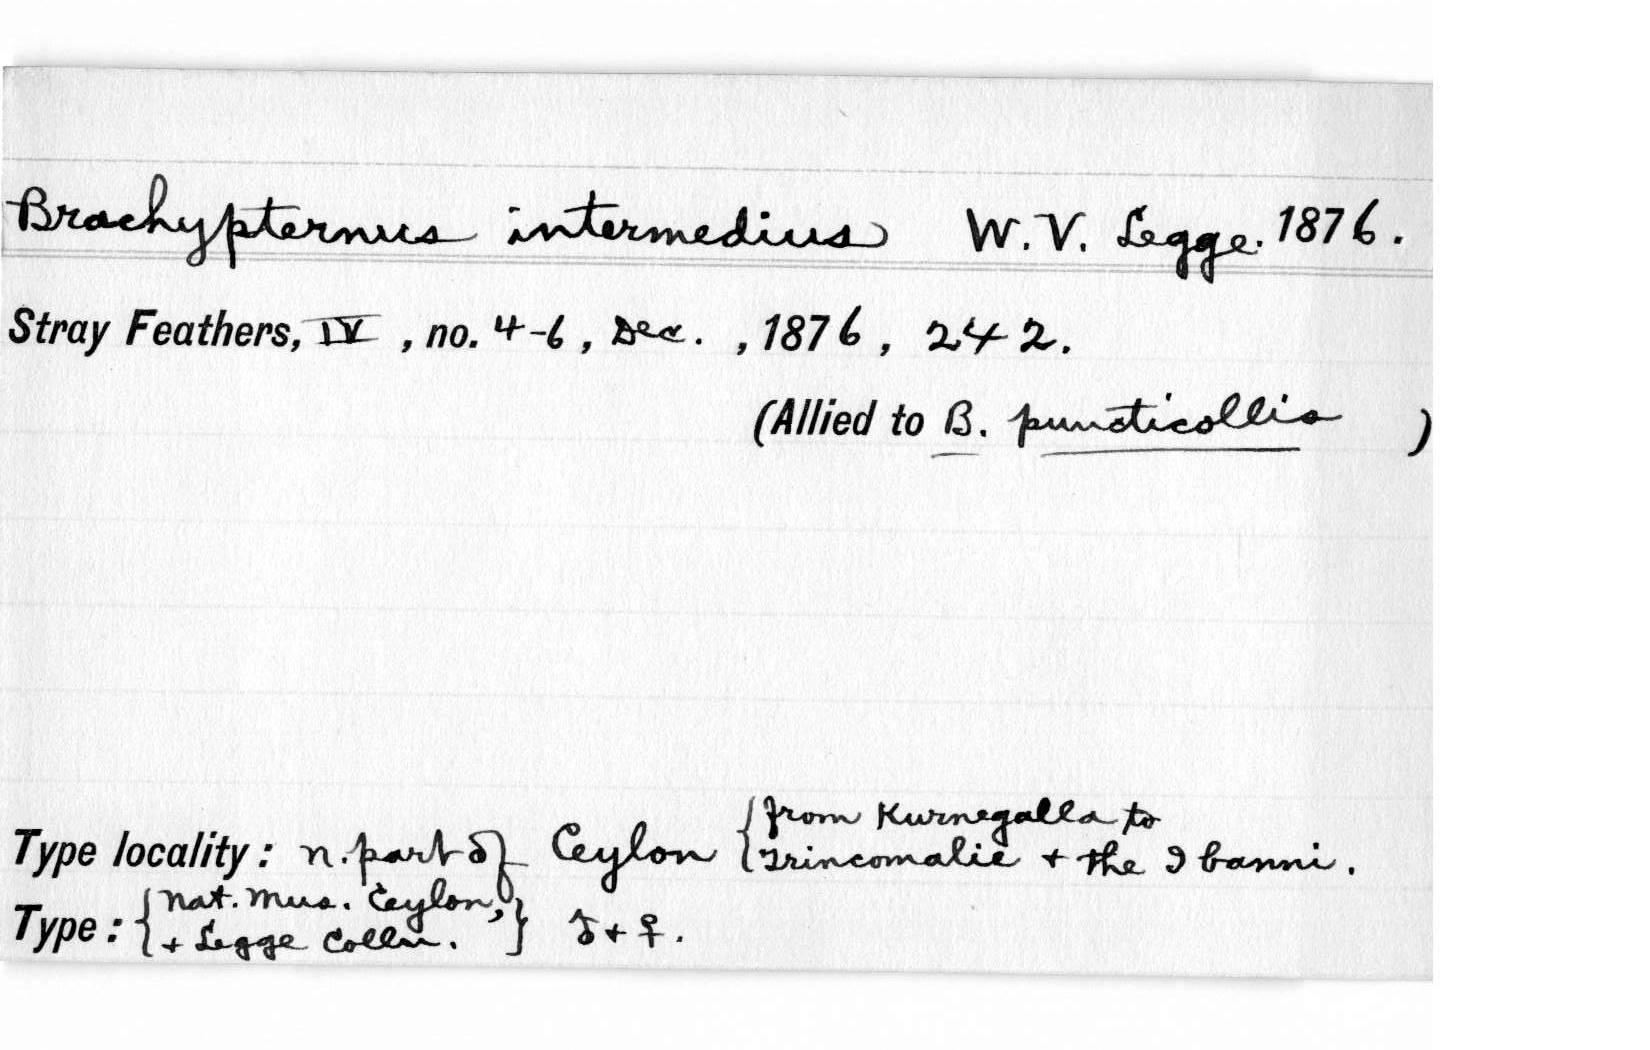 Brachypternus intermedius W. V. Legge. 1876.
Stray Feathers, IV, no. 4-6, Dec., 1876, 242.
(Allied to B. puncticollis)
Type locality: n. part of Ceylon {from Kurnegalla to
Trincomalie + the banni.
Type: {Nat. Mus. Ceylon,
+ Legge Colln.} ♂ + ♀.